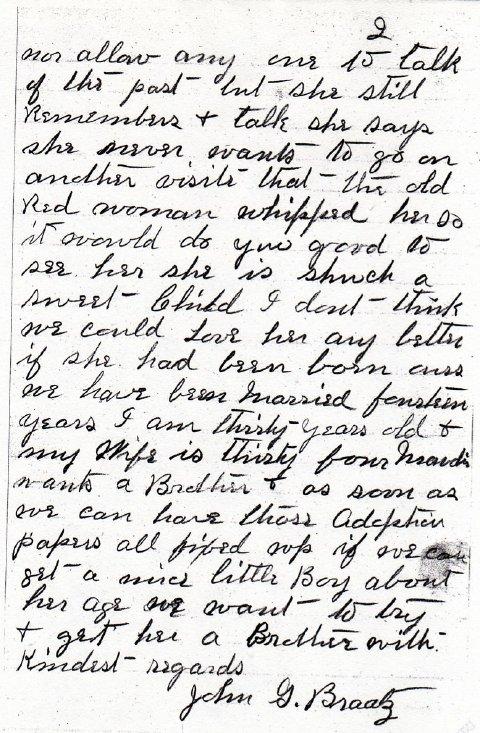 2
nor allow any one to talk
of the past but she still
Remembers + talk she says
she never wants to go on
another visite that the old
Red woman whipped her so
it would do you good to
see her she is shuch a
sweet Child I dont think
we could Love her any better
if she had been born ours
we have been Married fourteen
years I am thirty years old +
my Wife is thirty four
wants a Brother + as soon as
we can have those Adoption
papers all fixed up if we can
get a nice little Boy about
her age we want to try
+ get her a Brother with
Kindest regards
John G. Braatz